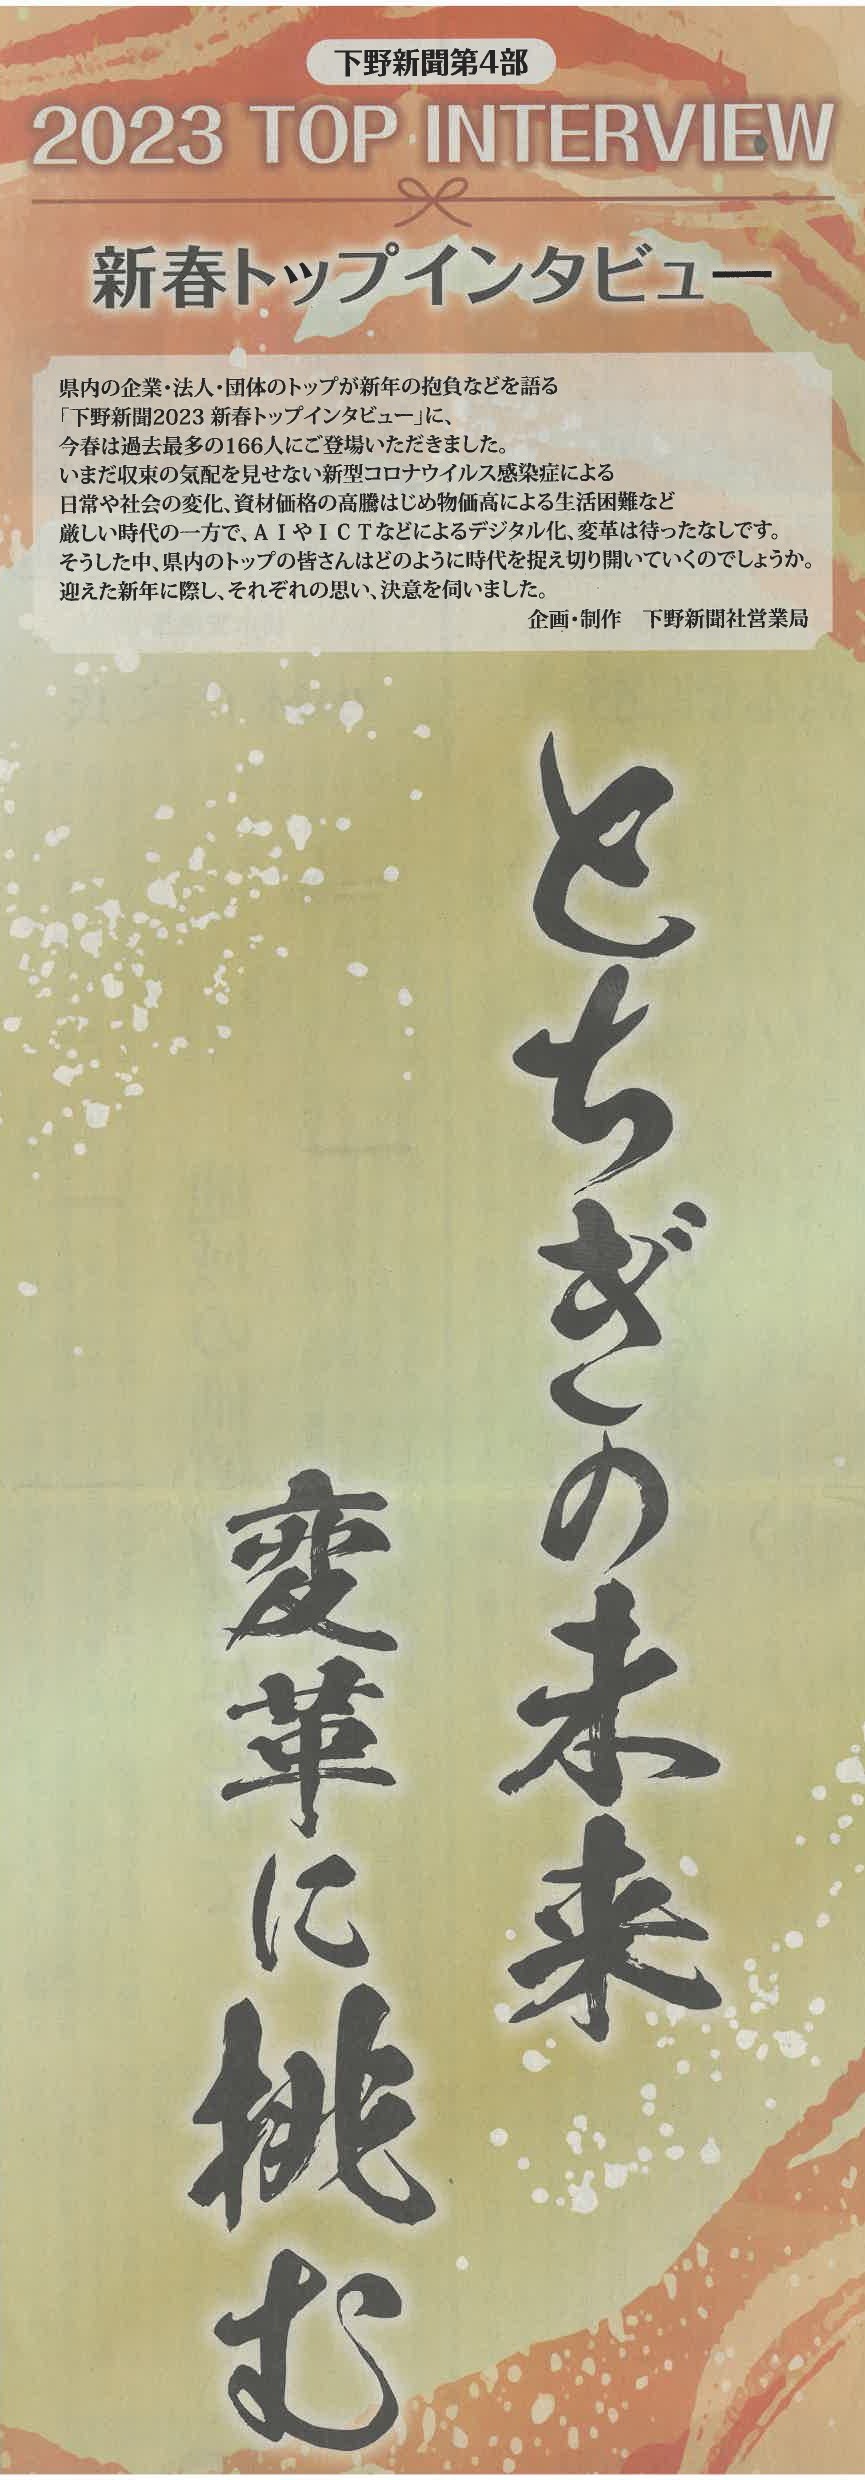 下野新聞第4部
2023 TOP INTERVIEW
新春トップインタビュー
県内の企業・法人・団体のトップが新年の抱負などを語る
「下野新聞2023 新春トップインタビュー」に、
今春は過去最多の166人にご登場いただきました。
いまだ収束の気配を見せない新型コロナウイルス感染症による
日常や社会の変化、資材価格の高騰はじめ物価高による生活困難など
厳しい時代の一方で、ＡＩやＩＣＴなどによるデジタル化、変革は待ったなしです。
そうした中、県内のトップの皆さんはどのように時代を捉え切り開いていくのでしょうか。
迎えた新年に際し、それぞれの思い、決意を伺いました。
企画・制作　下野新聞社営業局
とちぎの未来
変革に挑む